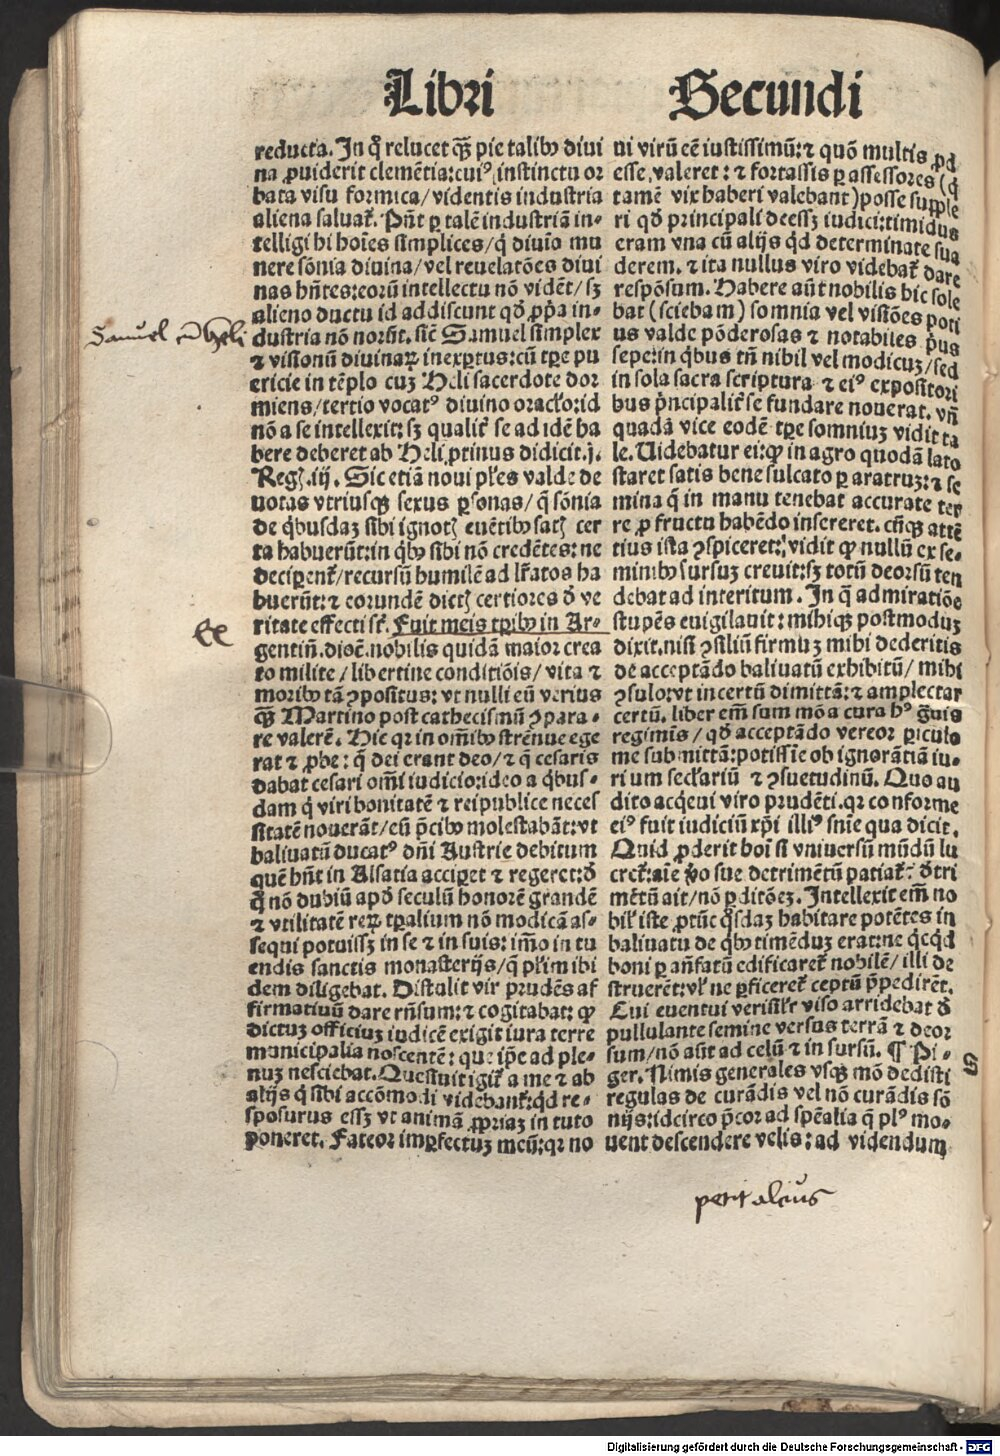 Libri Secundi
reducta. In q̃ relucet qȝ pie talibꝰ diui
na ꝓuiderit clemẽtia: cuiꝰ instinctu or
bata visu formica / videntis industria
aliena saluat̃. Pñt ꝑ talẽ industriã in-
telligi hi hoĩes simplices / q̃ diuĩo mu
nere sõnia diuina / vel reuelatões diui
nas hñtes: eorũ intellectu nõ vidẽt / sȝ
alieno ductu id addiscunt qd̃ ꝓpꝛia in-
dustria nõ noꝛũt. sic̃ Samuel simplex
⁊ visionũ diuinaꝝ inexꝑtus: cũ tꝑe pu
ericie in tẽplo cuȝ Heli sacerdote doꝛ
miens / tertio vocatꝰ diuino oꝛaclo: id
nõ a se intellexit: sȝ qualit̃ se ad idẽ ha
bere deberet ab Heli ꝓtinus didicit. j.
Reg. iij. Sic etiã noui plẽs valde de
uotas vtriusqȝ sexus ꝑsonas / q̃ sõnia
de q̃busdaȝ sibi ignotꝭ euẽtibꝰ satꝭ cer
ta habuerũt: in q̃bꝰ sibi nõ credẽtes: ne
deciperent̃ / recursũ humilẽ ad lr̃atos ha
buerũt: ⁊ eorundẽ dictꝭ certiores d̃ ve
ritate effecti sũt. Fuit meis tꝑibꝰ in Ar-
gentiñ. dioẽ. nobilis quidã maior crea
to milite / libertine conditiõis / vita ⁊
moribꝰ tã ꝯpositus: vt nulli eũ verius
qȝ Martino post cathecismũ ꝯpara-
re valerẽ. Hic qꝛ in oĩbꝰ strẽnue ege
rat ⁊ ꝓbe: q̃ dei erant deo / ⁊ q̃ cesaris
dabat cesari om̃i iudicio: ideo a q̃bus-
dam q̃ viri bonitatẽ ⁊ reipublice neces
sitatẽ nouerãt / eũ p̃cibꝰ molestabãt: vt
baliuatũ ducatꝰ dñi Austrie debitum
quẽ hñt in Alsatia acciꝑet ⁊ regeret: d̃
q̃ nõ dubiũ apd̃ seculũ honorẽ grandẽ
⁊ vtilitatẽ reꝝ tꝑalium nõ modicã as-
sequi potuissȝ in se ⁊ in suis: im̃o in tu
endis sanctis monasterijs / q̃ pl̃im ibi
dem diligebat. Distulit vir prudẽs af
firmatiuũ dare rñsum: ⁊ cogitabat: ꝙ
dictuȝ officiuȝ iudicẽ exigit iura terre
municipalia noscentẽ: que ip̃e ad ple-
nuȝ nesciebat. Quesiuit igit̃ a me ⁊ ab
alijs q̃ sibi accõmodi videbant̃: qd̃ re-
sposurus essȝ vt animã ꝓpriaȝ in tuto
poneret. Fateor imꝑfectuȝ meũ: qꝛ no
ui virũ eẽ iustissimũ: ⁊ quõ multis ꝓd
esse valeret: ⁊ fortassis ꝑ assessores (q̃
tamẽ vix haberi valebant) posse supple
ri qd̃ principali deessȝ iudici: timidus
eram vna cũ alijs qd̃ determinate sua
derem. ⁊ ita nullus viro videbat̃ dare
respõsum. Habere aũt nobilis hic sole
bat (sciebam) somnia vel visiões poti
us valde põderosas ⁊ notabiles p̃us
sepe: in q̃bus tñ nihil vel modicuȝ / sed
in sola sacra scriptura ⁊ eiꝰ expositori
bus p̃ncipalit̃ se fundare nouerat. vñ
quadã vice eodẽ tꝑe somniuȝ vidit ta
le. Uidebatur ei: ꝙ in agro quodã lato
staret satis bene sulcato ꝑ aratruȝ: ⁊ se
mina q̃ in manu tenebat accurate ter
re ꝓ fructu habẽdo insereret. cũqȝ attẽ
tius ista ꝯspiceret: vidit ꝙ nullũ ex se-
minibꝰ sursuȝ creuit: sȝ totũ deorsũ ten
debat ad interitum. In q̃ admiratiõe
stupẽs euigilauit: mihiqȝ postmoduȝ
dixit. nisi ꝯsiliũ firmuȝ mihi dederitis
de acceptãdo baliuatũ exhibitũ / mihi
ꝯsulo: vt incertũ dimittã: ⁊ amplectar
certũ. liber em̃ sum mõ a cura hꝰ g̃uis
regimẽs / qd̃ acceptãdo vereor ꝑiculo
me submittã: potissĩe ob ignorãtiã iu-
rium seclariũ ⁊ ꝯsuetudinũ. Quo au
dito acq̃eui viro prudẽti. qꝛ conforme
eiꝰ fuit iudiciũ xp̃i illiꝰ sn̄ie qua dicit.
Quid ꝓderit hoĩ si vniuersũ mũdũ lu
cret̃: aĩe v̊o sue detrimẽtũ patiat̃: d̃tri
mẽtũ ait / nõ ꝑditõeȝ. Intellexit em̃ no
bil̃ iste ꝓtũc q̃sdaȝ habitare potẽtes in
baliuatu de q̃bꝰ timẽduȝ erat: ne q̃cq̃d
boni ꝑ añfatũ edificaret̃ nobilẽ / illi de
struerẽt: vl̃ ne ꝑficeret̃ ceptũ p̃pedirẽt.
Cui euentui verisil̃r viso arridebat d̃
pullulante semine versus terrã ⁊ deor
sum / nõ aũt ad celũ ⁊ in sursũ. ¶ Pi-
ger. Nimis generales vsqȝ mõ dedisti
regulas de curãdis vel nõ curãdis sõ
nijs: idcirco p̃cor ad spẽalia q̃ plꝰ mo-
uent descendere velis: ad videndum
S
petit alcius
Digitalisierung gefördert durch die Deutsche Forschungsgemeinschaft - DFG